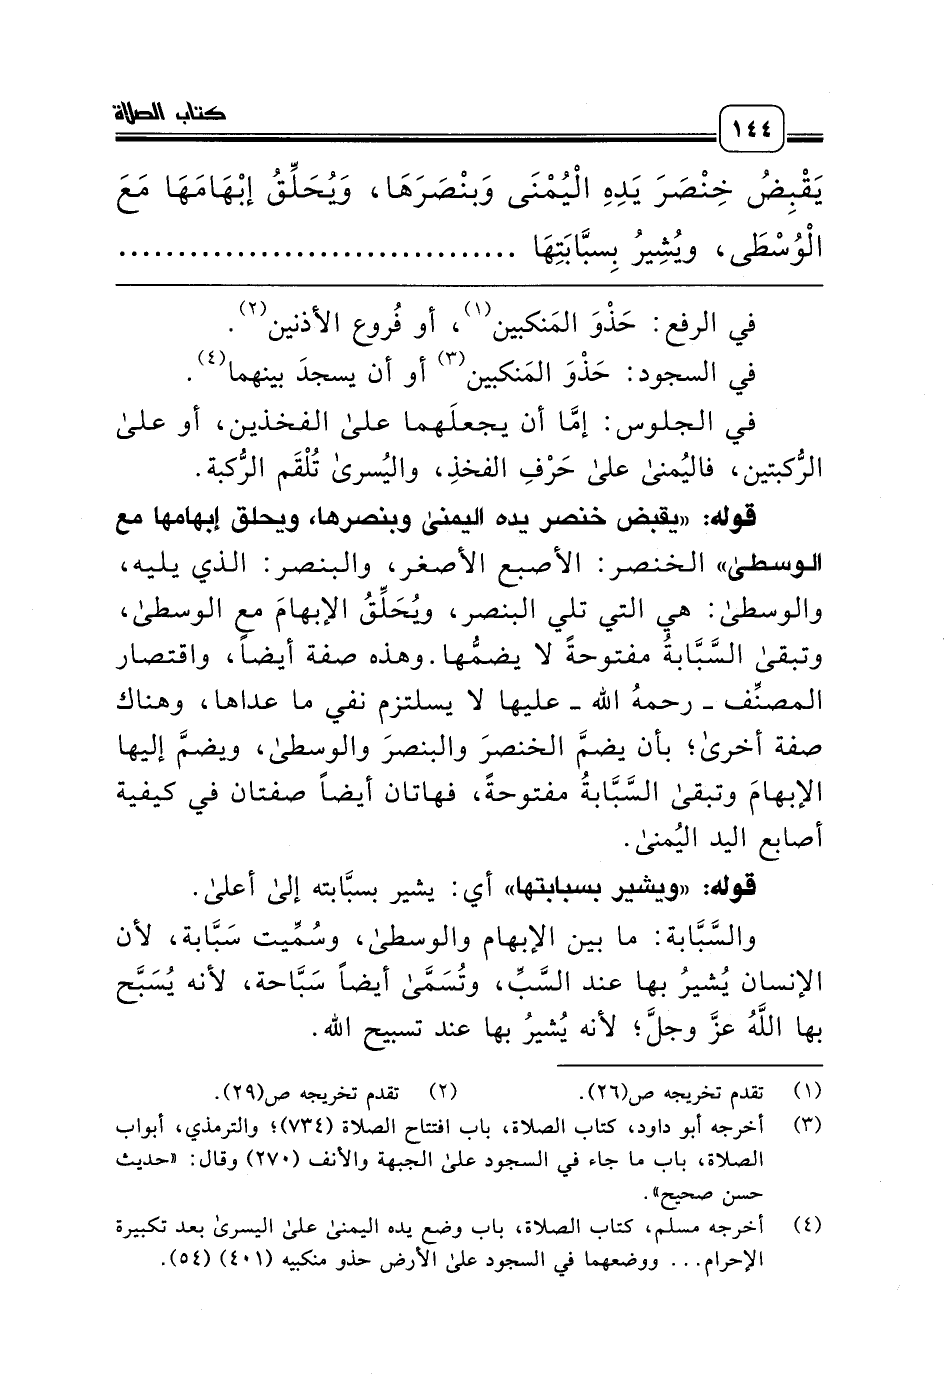 ١٤٤ كتاب الصلاة
يَقْبِضُ خِنْصَرَ يَدِهِ الْيُمْنَى وَبنْصَرَهَا، وَيُحَلِّقُ إبْهَامَهَا مَعَ
الْوُسْطَى، ويُشِيرُ بِسبَّابَتِهَا ..................................
في الرفع: حَذْوَ المَنكبين(١)، أو فُروع الأذنين(٢).
في السجود: حَذْوَ المَنكبين(٣) أو أن يسجدَ بينهما(٤).
في الجلوس: إمَّا أن يجعلَهما علىٰ الفخذين، أو علىٰ
الرُّكبتين، فاليُمنىٰ علىٰ حَرْفِ الفخذِ، واليُسرىٰ تُلْقَم الرُّكبة.
قوله: «يقبض خنصر يده اليمنىٰ وبنصرها، ويحلق إبهامها مع
الوسطىٰ» الخنصر: الأصبع الأصغر، والبنصر: الذي يليه،
والوسطىٰ: هي التي تلي البنصر، ويُحَلِّقُ الإبهامَ مع الوسطىٰ،
وتبقىٰ السَّبَّابةُ مفتوحةً لا يضمُّها. وهذه صفة أيضاً، واقتصار
المصنِّف ـ رحمهُ الله ـ عليها لا يستلزم نفي ما عداها، وهناك
صفة أخرىٰ؛ بأن يضمَّ الخنصرَ والبنصرَ والوسطىٰ، ويضمَّ إليها
الإبهامَ وتبقىٰ السَّبَّابةُ مفتوحةً، فهاتان أيضاً صفتان في كيفية
أصابع اليد اليُمنىٰ.
قوله: «ويشير بسبابتها» أي: يشير بسبَّابته إلىٰ أعلىٰ.
والسَّبَّابة: ما بين الإبهام والوسطىٰ، وسُمِّيت سَبَّابة، لأن
الإنسان يُشيرُ بها عند السَّبِّ، وتُسَمَّىٰ أيضاً سَبَّاحة، لأنه يُسَبَّح
بها اللَّهُ عزَّ وجلَّ؛ لأنه يُشيرُ بها عند تسبيح الله.
(١) تقدم تخريجه ص(٢٦). (٢) تقدم تخريجه ص(٢٩).
(٣) أخرجه أبو داود، كتاب الصلاة، باب افتتاح الصلاة (٧٣٤)؛ والترمذي، أبواب
الصلاة، باب ما جاء في السجود علىٰ الجبهة والأنف (٢٧٠) وقال: «حديث
حسن صحيح».
(٤) أخرجه مسلم، كتاب الصلاة، باب وضع يده اليمنىٰ علىٰ اليسرىٰ بعد تكبيرة
الإحرام... ووضعهما في السجود علىٰ الأرض حذو منكبيه (٤٠١) (٥٤).